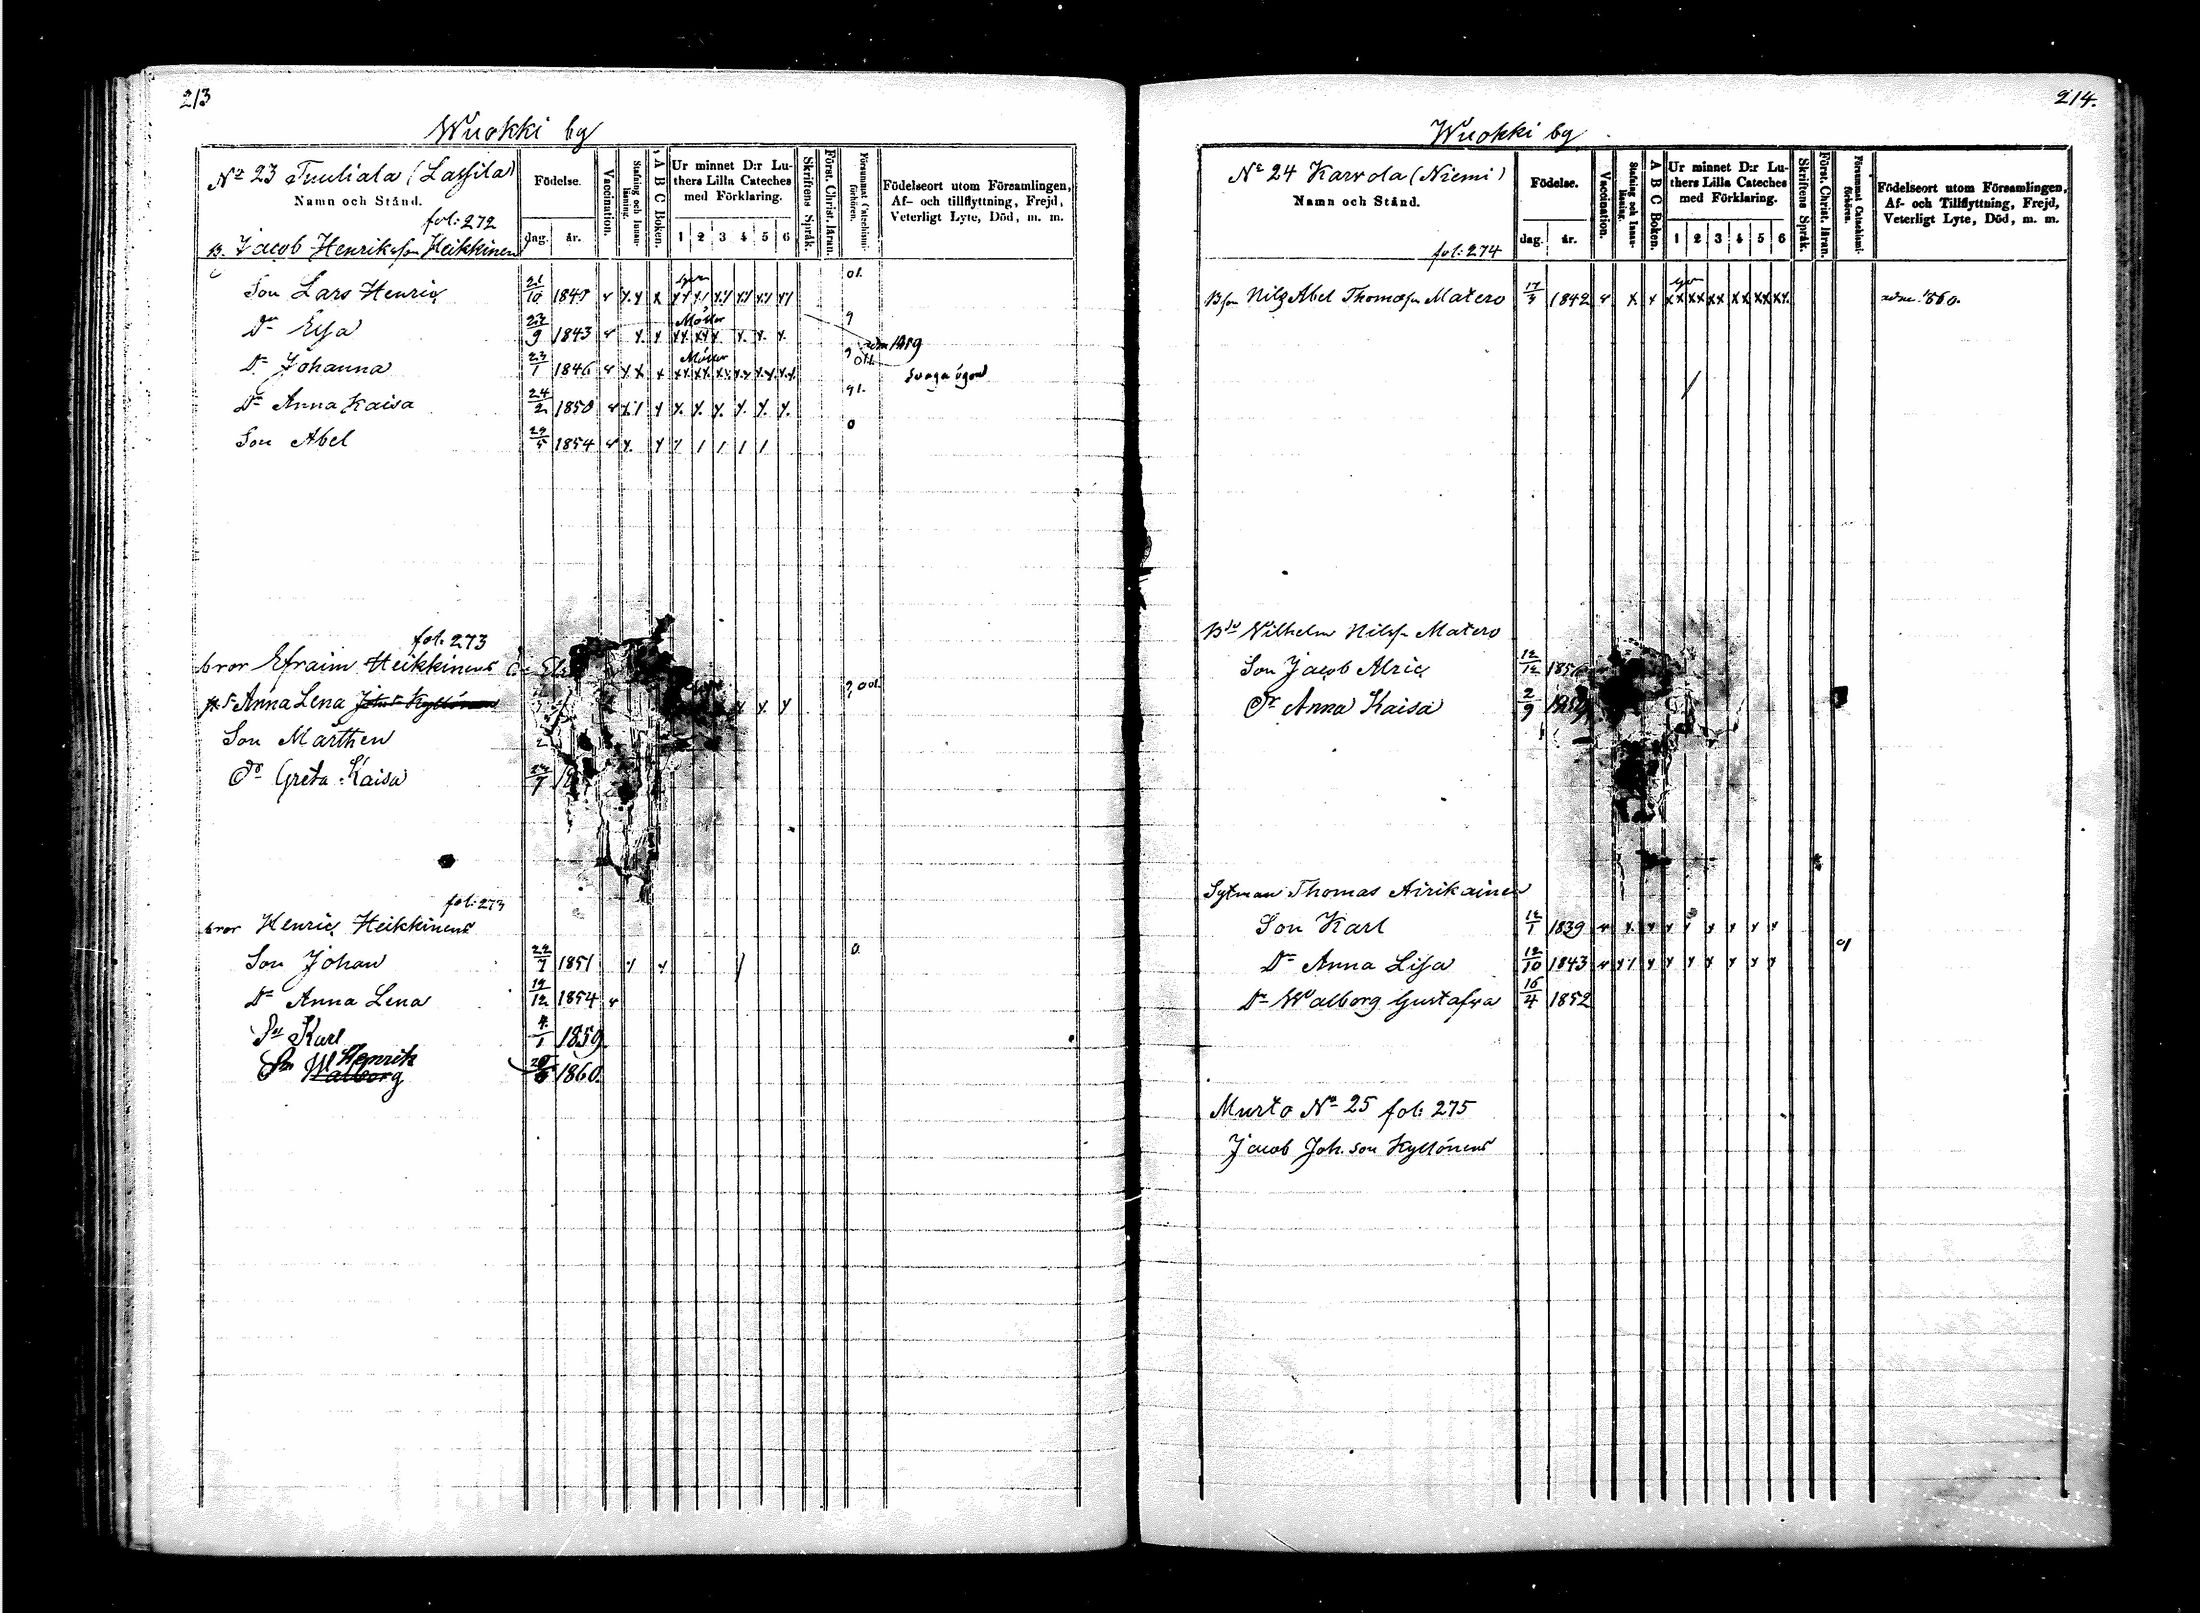 213
Wuokki by
No 23 Tuuliala (Lassila)
Namn och Stånd.
fol: 272
Födelse.
dag. år.
Vaccination.
Stafning och Innanläsning.
A B C Boken.
Ur minnet D:r Luthers Lilla Cateches med Förklaring.
1 2 3 4 5 6
Skriftens Språk.
Först. Christ. läran.
Försummat Catechismiförhören.
Födelseort utom Församlingen, Af- och tillflyttning, Frejd, Veterligt Lyte, Död, m. m.
B. Jacob Henriksson Heikkinen
Son Lars Henric 21/10
Dr Elsa 23/9 1843
Dr Johanna 23/1 1846 svaga ögon
Dr Anna Kaisa 24/2 1850
Son Abel 29/5 1854
fol: 273
bror Efraim Heikkinens
Anna Lena
Son Mårthen
Dr Greta Kaisa
fol: 273
bror Henric Heikkinens
Son Johan 1851
Dr Anna Lena 1854
Sn Karl 1859
Sn Henrik
Walborg 1860
214.
Wuokki by
No 24 Karvola (Niemi)
Namn och Stånd.
fol: 274
Födelse.
dag. år.
Vaccination.
Stafning och Innanläsning.
A B C Boken.
Ur minnet D:r Luthers Lilla Cateches med Förklaring.
1 2 3 4 5 6
Skriftens Språk.
Först. Christ. läran.
Försummat Catechismiförhören.
Födelseort utom Församlingen, Af- och Tillflyttning, Frejd, Veterligt Lyte, Död, m. m.
Nils Abel Thomasson Matero 1842 1860.
Wilhelm Nilsson Matero
Son Jacob Alric 12/12
Dr Anna Kaisa 2/9
Sytman Thomas Airikainen
Son Karl 12/1 1839
Dr Anna Lisa 12/10 1843
Dr Walborg Gustafva 16/4 1852
Murto No 25 fol: 275
Jacob Joh. son Kyllönens